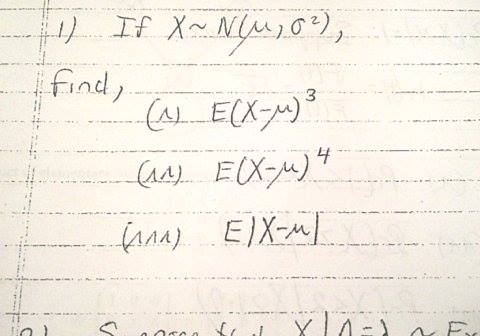 1) If X ~ N(μ, σ²),
find,
(i) E(X-μ)³
(ii) E(X-μ)⁴
(iii) E|X-μ|